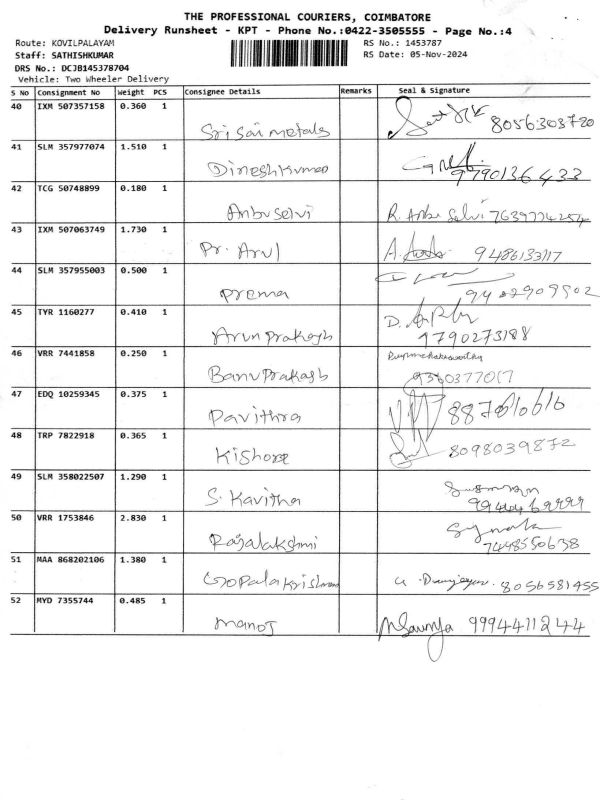 THE PROFESSIONAL COURIERS, COIMBATORE
Delivery Runsheet - KPT - Phone No.:0422-3505555 - Page No.:4
Route: KOVILPALAYAM RS No.: 1453787
Staff: SATHISHKUMAR RS Date: 05-Nov-2024
DRS No.: DCJB145378704
Vehicle: Two Wheeler Delivery
S No Consignment No Weight PCS Consignee Details Remarks Seal & Signature
40 IXM 507357158 0.360 1
Sri Sai metals 8056303720
41 SLM 357977074 1.510 1
Dineshkumar 9790136433
42 TCG 50748899 0.180 1
Anbuselvi R. Anbu Selvi 7639774254
43 IXM 507063749 1.730 1
Pr. Arul A. 9486133117
44 SLM 357955003 0.500 1
Prema
45 TYR 1160277 0.410 1
Arunprakash D. 9790273188
46 VRR 7441858 0.250 1
Banuprakash 9360377017
47 EDQ 10259345 0.375 1
Pavithra 8876101616
48 TRP 7822918 0.365 1
Kishore 8098039872
49 SLM 358022507 1.290 1
S. Kavitha
50 VRR 1753846 2.830 1
Rajalakshmi 7448550638
51 MAA 868202106 1.380 1
Gopalakrishnan 8056581455
52 MYD 7355744 0.485 1
Manoj Sowmya 9994411244